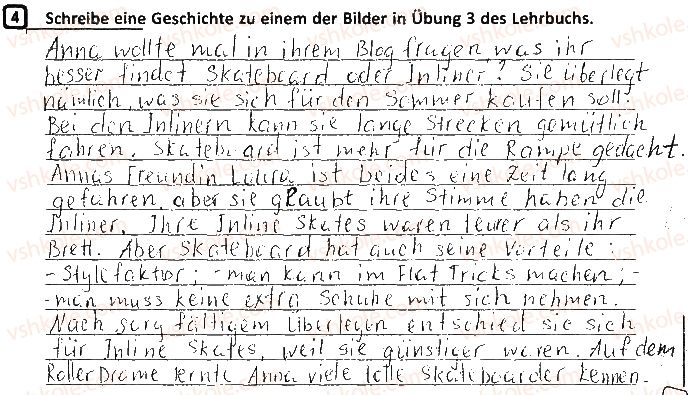 4 Schreibe eine Geschichte zu einem der Bilder in Übung 3 des Lehrbuchs.
Anna wollte mal in ihrem Blog fragen was ihr
besser findet Skateboard oder Inliner? Sie überlegt
nämlich, was sie sich für den Sommer kaufen soll?
Bei den Inlinern kann sie lange Strecken gemütlich
fahren. Skateboard ist mehr für die Rampe gedacht.
Annas Freundin Laura ist beides eine Zeit lang
gefahren, aber sie glaubt ihre Stimme haben die
Inliner. Ihre Inline Skates waren teurer als ihr
Brett. Aber Skateboard hat auch seine Vorteile:
- Stylefaktor; - man kann im Flat Tricks machen; -
- man muss keine extra Schuhe mit sich nehmen.
Nach sorg fältigem Überlegen entschied sie sich
für Inline Skates, weil sie günstiger waren. Auf dem
Roller Drome lernte Anna viele tolle Skateboarder kennen.